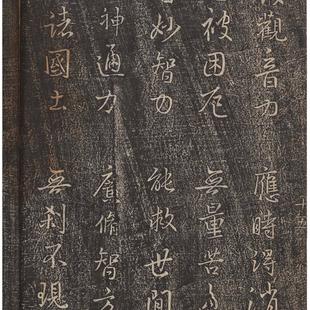 觀音力 應時得消
被困厄 無量苦
妙智力 能救世間
神通力 廣脩智方
諸國土 無刹不現